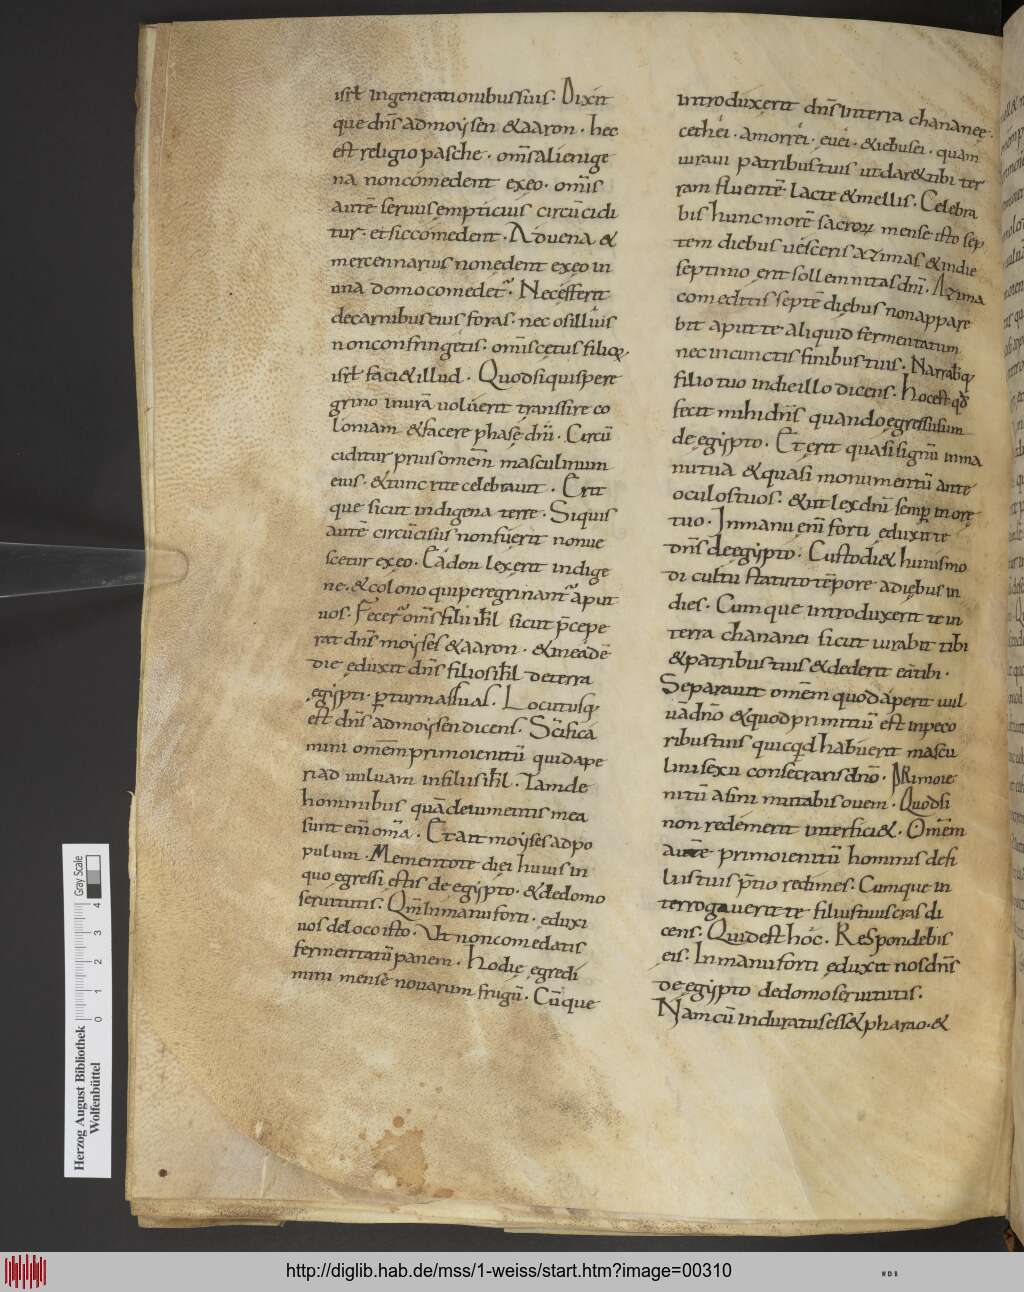 isrł ingenerationibus suis. Dixit
que dn̄s admoysen &aaron. hęc
est religio pasche. om̄s alienige
na non comedent exeo. om̄is
autē seruus empticius circūcidi
tur. et sic comedent. Aduena &
mercennarius non edent exeo in
una domo comedet̃. Nec efferet
decarnibus eius foras. nec os illius
non confringetis. om̄is cetus filioꝝ
isrł faci& illud. Quodsiquis pere
grino inurā uoluerit transire co
loniam &facere phasę dn̄i. Circū
ciditur prius omēm masculinum
eius. &tunc rite celebrauit. Erit
que sicut indigena terre. Siquis
autē circūcisus non fuerit nonue
scetur exeo. Eadem lex erit indige
ne. &colono qui peregrinant̃ aput
uos. Fecer̃ om̄s filii isr̄l sicut p̄cepe
rat dn̄s moyses &aaron. &ineadē
die eduxit dn̄s filios isr̄l deterra
ęgypti. ꝑ turmas suas. Locutusq;
est dn̄s admoysen dicens. Sc̄ifica
mihi omēm primogenitū quid ape
rit ad uuluam infiliis isr̄l. Tam de
hominibus quā deiumentis mea
sunt eni omīa. Et ait moyses adpo
pulum. Mementote diei huius in
quo egressi estis deegypto. &dedomo
seruitutis. Qm̄ inmanu forti. eduxi
uos deloco isto. Ut non comedatis
fermentatū panem. Hodię egredi
mini mense nouarum frugū. Cūque
introduxerit dn̄s interra chananeę.
cethei. amorrei. euei. &iebusei. quam
iuraui patribus tuis ut dar& tibi ter
ram fluentē. lacte &mellis. Celebra
bis hunc morē sacroꝝ mense isto sep
tem diebus uesceris azimas. &indie
septimo erit sollemnitas dn̄i. Azima
comeditis septē diebus non appare
bit aput te aliquid fermentatum
nec incunctis finibus tuis. Narrabisq;
filio tuo indie illo dicens. Hoc est qđ
fecit mihi dn̄s quando egressus sum
deegypto. Et erit quasi signū inma
nu tua &quasi monumentū ante
oculos tuos. &ut lex dn̄i semp̱ in ore
tuo. Inmanu eni forti eduxit te
dn̄s deegypto. Custodi& huiusmo
di cultū statuto tēpore adiebus in
dies. Cumque introduxerit te in
terra chananei sicut iurabit tibi
&patribus tuis &dederit eā tibi.
Separauit omēm quod aperit uul
uā dn̄o &quod primitiuū est inpeco
ribus tuis quicqđ habuerit mascu
lini sexu consecraris dn̄o. Primoge
nitū asini mutabis ouem. Quodsi
non redemerit interfici&. Omēm
autē primogenitū hominis defi
liis tuis p̄tio redimes. Cumque in
terrogauerit te filius tuus cras di
cens. Quid est hoc. Respondebis
eis. Inmanu forti eduxit nos dn̄s
deegypto dedomo seruitutis.
Nam cū induratus ess& pharao. &
Herzog August Bibliothek
Wolfenbüttel
0 1 2 3 4
Gray Scale
http://diglib.hab.de/mss/1-weiss/start.htm?image=00310